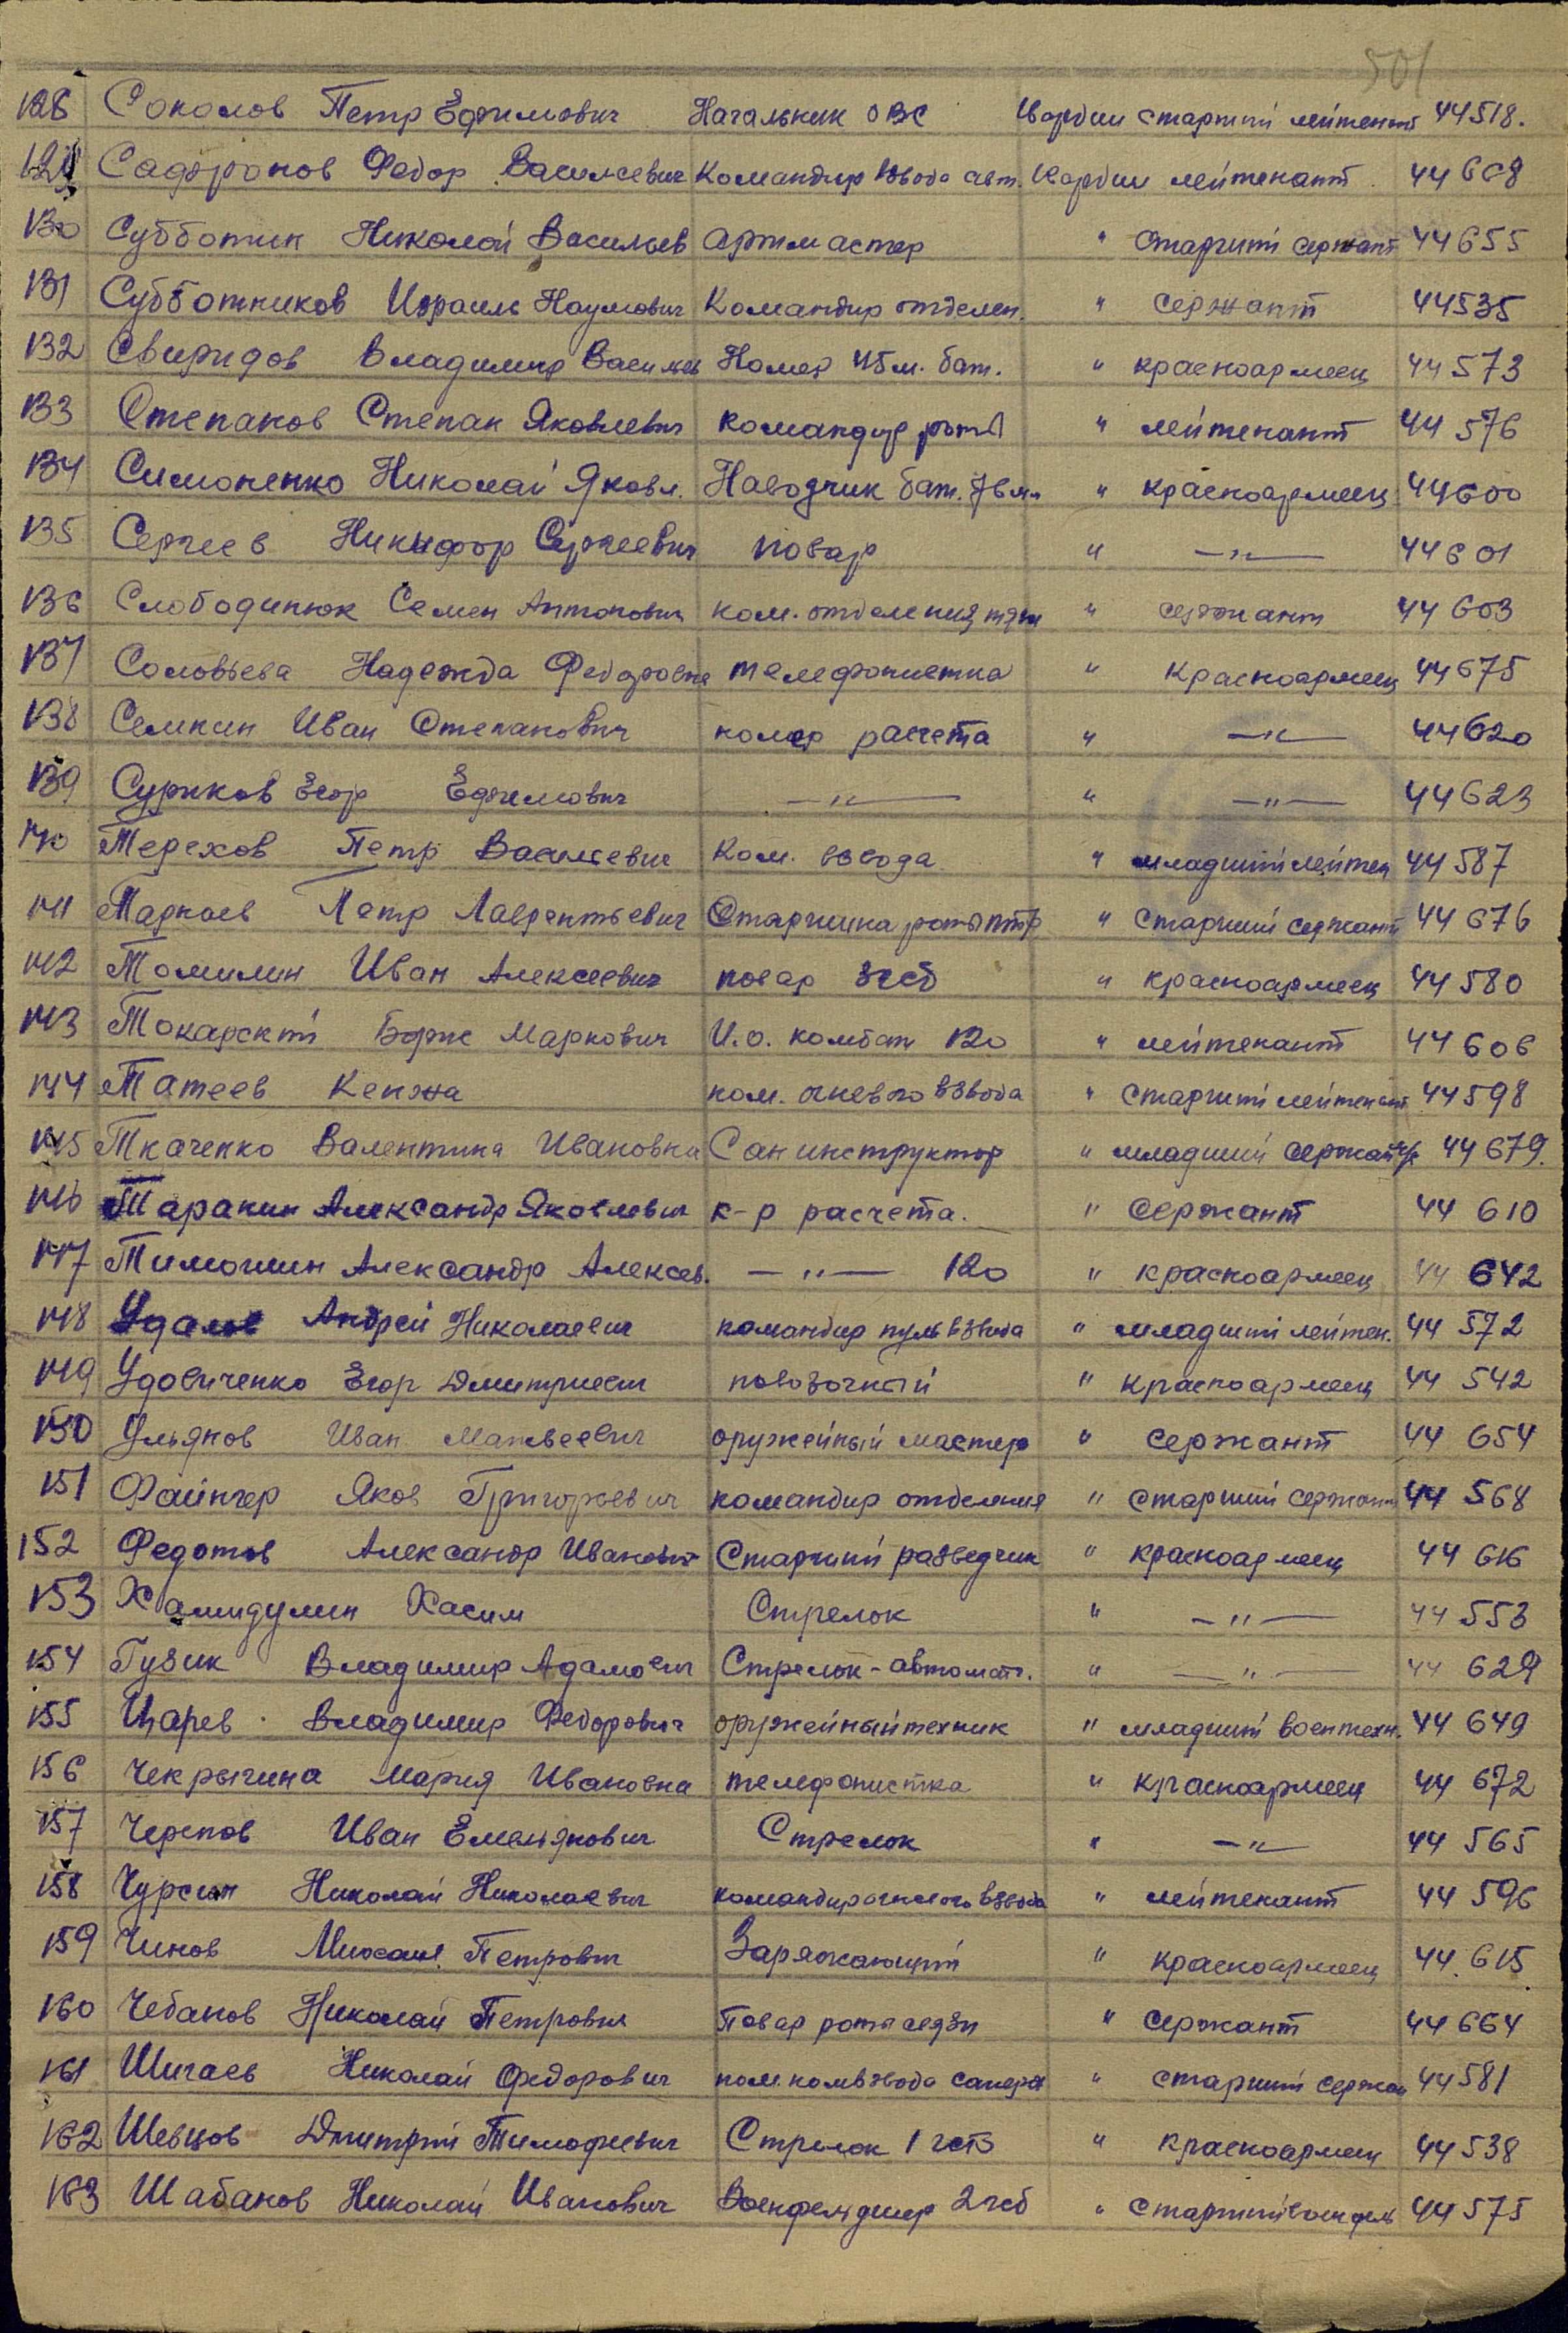 501
128 Соколов Петр Ефимович Начальник ОВС Гвардии старший лейтенант 44518.
129 Сафронов Федор Васильевич Командир взвода авт. Гвардии лейтенант 44668
130 Субботин Николай Васильев Артмастер " Старший сержант 44655
131 Субботников Израиль Наумович Командир отделен. " сержант 44535
132 Свиридов Владимир Васильев Номер 45 м. бат. " красноармеец 44573
133 Степанов Степан Яковлевич командир роты " лейтенант 44576
134 Симоненко Николай Яковл. Наводчик бат. 76 мм " красноармеец 44600
135 Сергеев Никифор Сергеевич повар " —"— 44601
136 Слободинюк Семен Антонович ком. отделения " сержант 44603
137 Соловьева Надежда Федоровна телефонистка " Красноармеец 44675
138 Семкин Иван Степанович номер расчета " —"— 44620
139 Суриков Егор Ефимович —"— " —"— 44623
140 Терехов Петр Васильевич Ком. взвода " младший лейтен 44587
141 Таркаев Петр Лаврентьевич Старшина роты птр " Старший сержант 44676
142 Томилин Иван Алексеевич повар 3гсб " красноармеец 44580
143 Токарский Борис Маркович И.о. комбат 120 " лейтенант 44606
144 Татеев Кенжа ком. огневого взвода " Старший лейтенант 44598
145 Ткаченко Валентина Ивановна Санинструктор " младший сержант 44679.
146 Таранин Александр Яковлевич к-р расчета. " Сержант 44610
147 Тимошин Александр Алексеев. —"— 120 " красноармеец 44642
148 Удалов Андрей Николаевич командир пульвзвода " младший лейтен. 44572
149 Удовиченко Егор Дмитриевич повозочный " красноармеец 44542
150 Ульянов Иван Матвеевич оружейный мастер " сержант 44654
151 Файнгер Яков Григорьевич командир отделения " старший сержант 44568
152 Федотов Александр Иванович Старший разведчик " красноармеец 44616
153 Хамидулин Хасим Стрелок " —"— 44553
154 Гузик Владимир Адамович Стрелок-автомат. " —"— 44629
155 Царев Владимир Федорович оружейный техник " младший воентехн. 44649
156 Чекрыгина Мария Ивановна телефонистка " красноармеец 44672
157 Черепов Иван Емельянович Стрелок " —"— 44565
158 Чурсин Николай Николаевич командир огневого взвода " лейтенант 44596
159 Чинов Михаил Петрович Заряжающий " красноармеец 44615
160 Чебанов Николай Петрович Повар роты связи " сержант 44664
161 Шигаев Николай Федорович пом. комвзвода сапера " старший сержан 44581
162 Шевцов Дмитрий Тимофеевич Стрелок 1 гсб " красноармеец 44538
163 Шабанов Николай Иванович Военфельдшер 2 гсб " Старший воен фель 44575